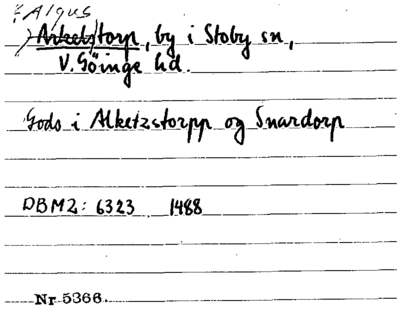 Algus
Arkels/torp, by i Stoby sn,
V. Göinge hd.
Gods i Alketzstorpp og Snardorp
DBM2: 6323 1488
Nr 5366.